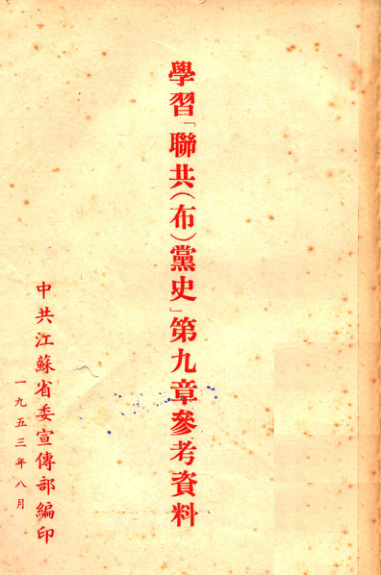 學習「聯共(布)黨史」第九章參考資料
中共江蘇省委宣傳部編印
一九五三年八月